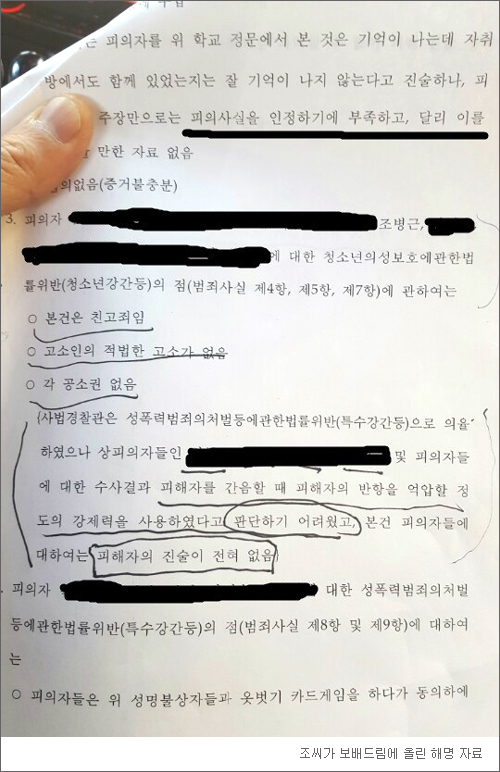 는 피의자를 위 학교 정문에서 본 것은 기억이 나는데 자취
방에서도 함께 있었는지는 잘 기억이 나지 않는다고 진술하나, 피
주장만으로는 피의사실을 인정하기에 부족하고, 달리 이를
만한 자료 없음
의없음(증거불충분)
3. 피의자 조병근,
에 대한 청소년의성보호에관한법
률위반(청소년강간등)의 점(범죄사실 제4항, 제5항, 제7항)에 관하여는
○ 본건은 친고죄임
○ 고소인의 적법한 고소가 없음
○ 각 공소권 없음
(사법경찰관은 성폭력범죄의처벌등에관한법률위반(특수강간등)으로 의율
하였으나 상피의자들인 및 피의자들
에 대한 수사결과 피해자를 간음할 때 피해자의 반항을 억압할 정
도의 강제력을 사용하였다고 판단하기 어려웠고, 본건 피의자들에
대하여는 피해자의 진술이 전혀 없음)
. 피의자 대한 성폭력범죄의처벌
등에관한법률위반(특수강간등)의 점(범죄사실 제8항 및 제9항)에 대하여
는
○ 피의자들은 위 성명불상자들과 옷벗기 카드게임을 하다가 동의하에
조씨가 보배드림에 올린 해명 자료